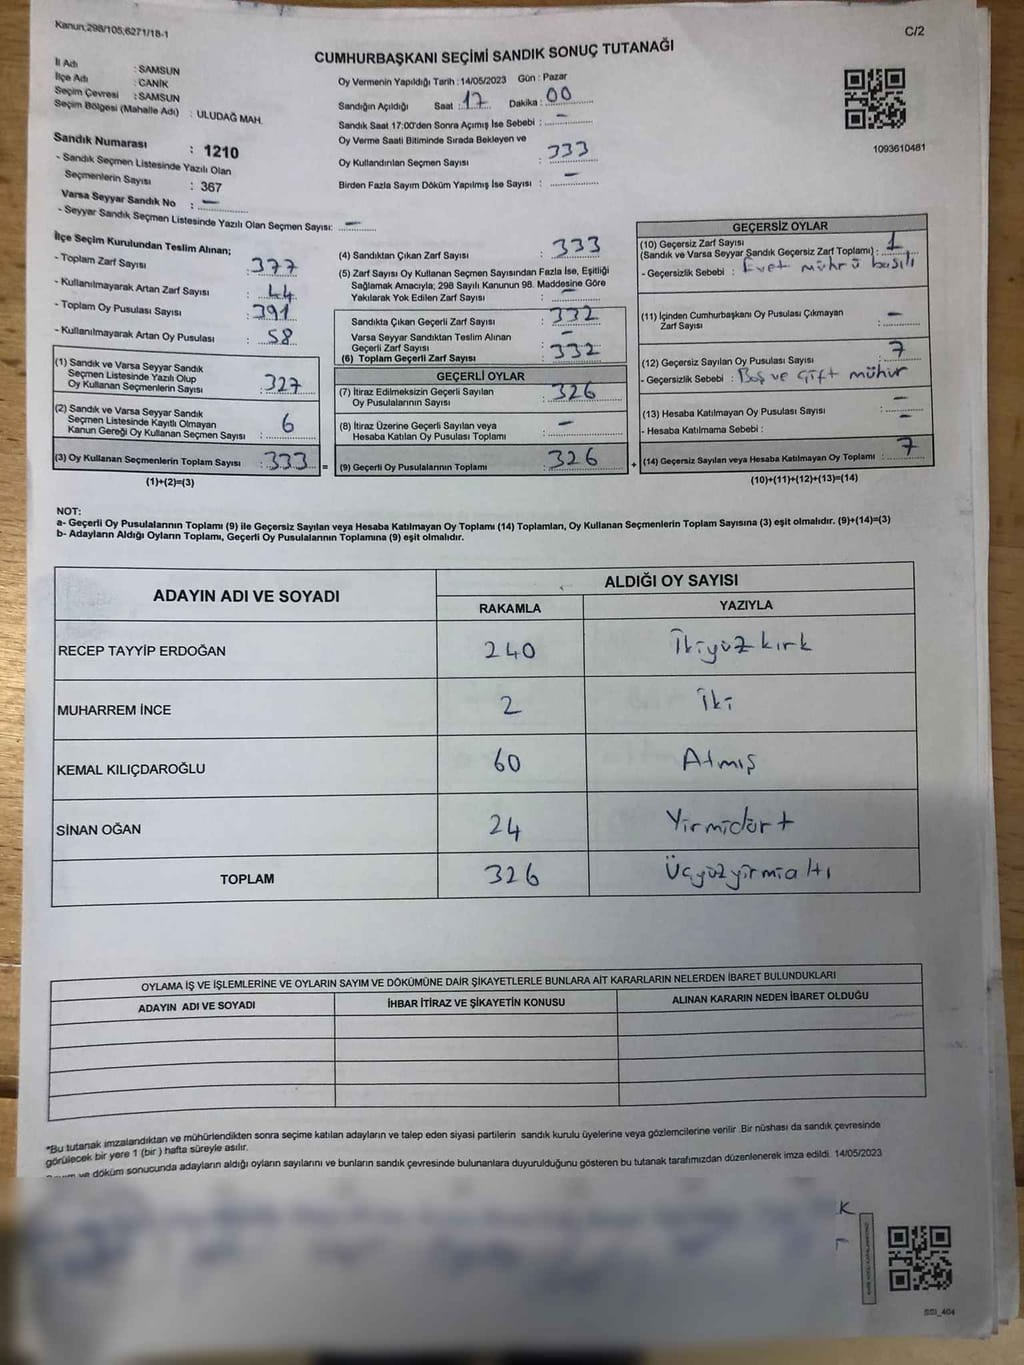 Kanun;298/105;6271/18-1
C/2
CUMHURBAŞKANI SEÇİMİ SANDIK SONUÇ TUTANAĞI
İl Adı : SAMSUN
İlçe Adı : CANİK
Seçim Çevresi : SAMSUN
Seçim Bölgesi (Mahalle Adı) : ULUDAĞ MAH.
Sandık Numarası : 1210
- Sandık Seçmen Listesinde Yazılı Olan
Seçmenlerin Sayısı : 367
Varsa Seyyar Sandık No : —
- Seyyar Sandık Seçmen Listesinde Yazılı Olan Seçmen Sayısı: —
Oy Vermenin Yapıldığı Tarih : 14/05/2023 Gün : Pazar
Sandığın Açıldığı Saat : 17 Dakika : 00
Sandık Saat 17:00'den Sonra Açımış İse Sebebi : —
Oy Verme Saati Bitiminde Sırada Bekleyen ve
Oy Kullandırılan Seçmen Sayısı : 333
Birden Fazla Sayım Döküm Yapılmış İse Sayısı : —
1093610481
İlçe Seçim Kurulundan Teslim Alınan;
- Toplam Zarf Sayısı : 377
- Kullanılmayarak Artan Zarf Sayısı : 44
- Toplam Oy Pusulası Sayısı : 391
- Kullanılmayarak Artan Oy Pusulası : 58
(1) Sandık ve Varsa Seyyar Sandık
Seçmen Listesinde Yazılı Olup
Oy Kullanan Seçmenlerin Sayısı : 327
(2) Sandık ve Varsa Seyyar Sandık
Seçmen Listesinde Kayıtlı Olmayan
Kanun Gereği Oy Kullanan Seçmen Sayısı : 6
(3) Oy Kullanan Seçmenlerin Toplam Sayısı : 333 =
(1)+(2)=(3)
(4) Sandıktan Çıkan Zarf Sayısı : 333
(5) Zarf Sayısı Oy Kullanan Seçmen Sayısından Fazla İse, Eşitliği
Sağlamak Amacıyla; 298 Sayılı Kanunun 98. Maddesine Göre
Yakılarak Yok Edilen Zarf Sayısı : —
Sandıkta Çıkan Geçerli Zarf Sayısı : 332
Varsa Seyyar Sandıktan Teslim Alınan
Geçerli Zarf Sayısı : —
(6) Toplam Geçerli Zarf Sayısı : 332
GEÇERLİ OYLAR
(7) İtiraz Edilmeksizin Geçerli Sayılan
Oy Pusulalarının Sayısı : 326
(8) İtiraz Üzerine Geçerli Sayılan veya
Hesaba Katılan Oy Pusulası Toplamı : —
(9) Geçerli Oy Pusulalarının Toplamı : 326 +
GEÇERSİZ OYLAR
(10) Geçersiz Zarf Sayısı
(Sandık ve Varsa Seyyar Sandık Geçersiz Zarf Toplamı) : 1
- Geçersizlik Sebebi : Evet mührü basılı
(11) İçinden Cumhurbaşkanı Oy Pusulası Çıkmayan
Zarf Sayısı : —
(12) Geçersiz Sayılan Oy Pusulası Sayısı : 7
- Geçersizlik Sebebi : Boş ve çift mühür
(13) Hesaba Katılmayan Oy Pusulası Sayısı : —
- Hesaba Katılmama Sebebi : —
(14) Geçersiz Sayılan veya Hesaba Katılmayan Oy Toplamı : 7
(10)+(11)+(12)+(13)=(14)
NOT:
a- Geçerli Oy Pusulalarının Toplamı (9) ile Geçersiz Sayılan veya Hesaba Katılmayan Oy Toplamı (14) Toplamları, Oy Kullanan Seçmenlerin Toplam Sayısına (3) eşit olmalıdır. (9)+(14)=(3)
b- Adayların Aldığı Oyların Toplamı, Geçerli Oy Pusulalarının Toplamına (9) eşit olmalıdır.
ADAYIN ADI VE SOYADI
ALDIĞI OY SAYISI
RAKAMLA YAZIYLA
RECEP TAYYİP ERDOĞAN 240 İkiyüzkırk
MUHARREM İNCE 2 İki
KEMAL KILIÇDAROĞLU 60 Atmış
SİNAN OĞAN 24 Yirmidört
TOPLAM 326 Üçyüzyirmialtı
OYLAMA İŞ VE İŞLEMLERİNE VE OYLARIN SAYIM VE DÖKÜMÜNE DAİR ŞİKAYETLERLE BUNLARA AİT KARARLARIN NELERDEN İBARET BULUNDUKLARI
ADAYIN ADI VE SOYADI İHBAR İTİRAZ VE ŞİKAYETİN KONUSU ALINAN KARARIN NEDEN İBARET OLDUĞU
*Bu tutanak imzalandıktan ve mühürlendikten sonra seçime katılan adayların ve talep eden siyasi partilerin sandık kurulu üyelerine veya gözlemcilerine verilir .Bir nüshası da sandık çevresinde
görülecek bir yere 1 (bir ) hafta süreyle asılır.
ve döküm sonucunda adayların aldığı oyların sayılarını ve bunların sandık çevresinde bulunanlara duyurulduğunu gösteren bu tutanak tarafımızdan düzenlenerek imza edildi. 14/05/2023
K
SSI_404